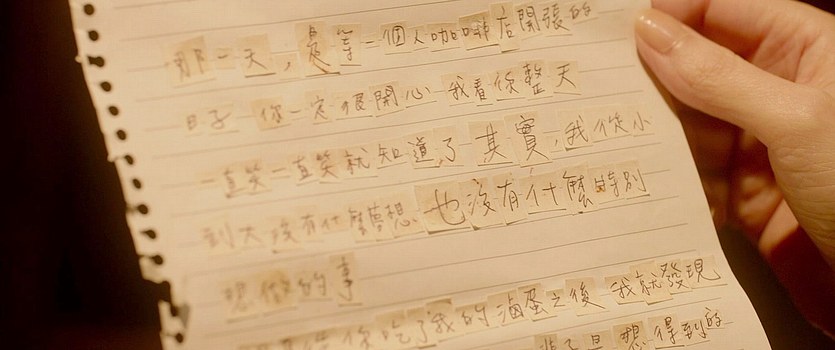 那一天，是第一個人咖啡店開張的
日子 你一定很開心 我看你整天
一直笑一直笑就知道了 其實，我從小
到大沒有什麼夢想 也沒有什麼特別
想做的事
你吃了我的滷蛋之後 我就發現
想得到的